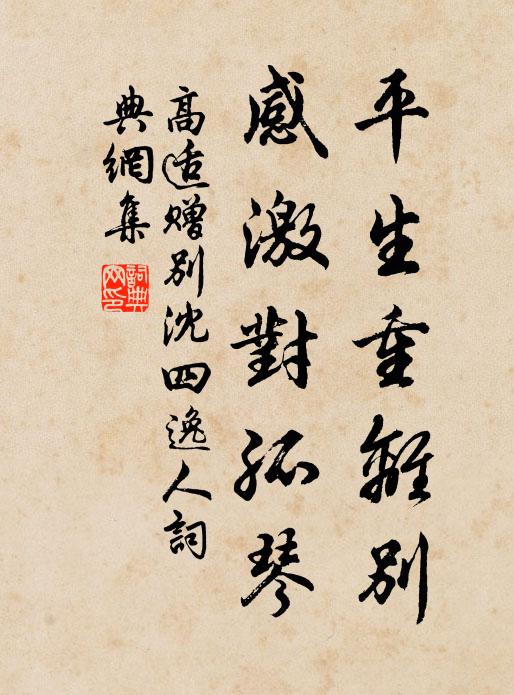 平生重離別
感激對孤琴
高适贈別沈四逸人詞
典網集
詞典網印